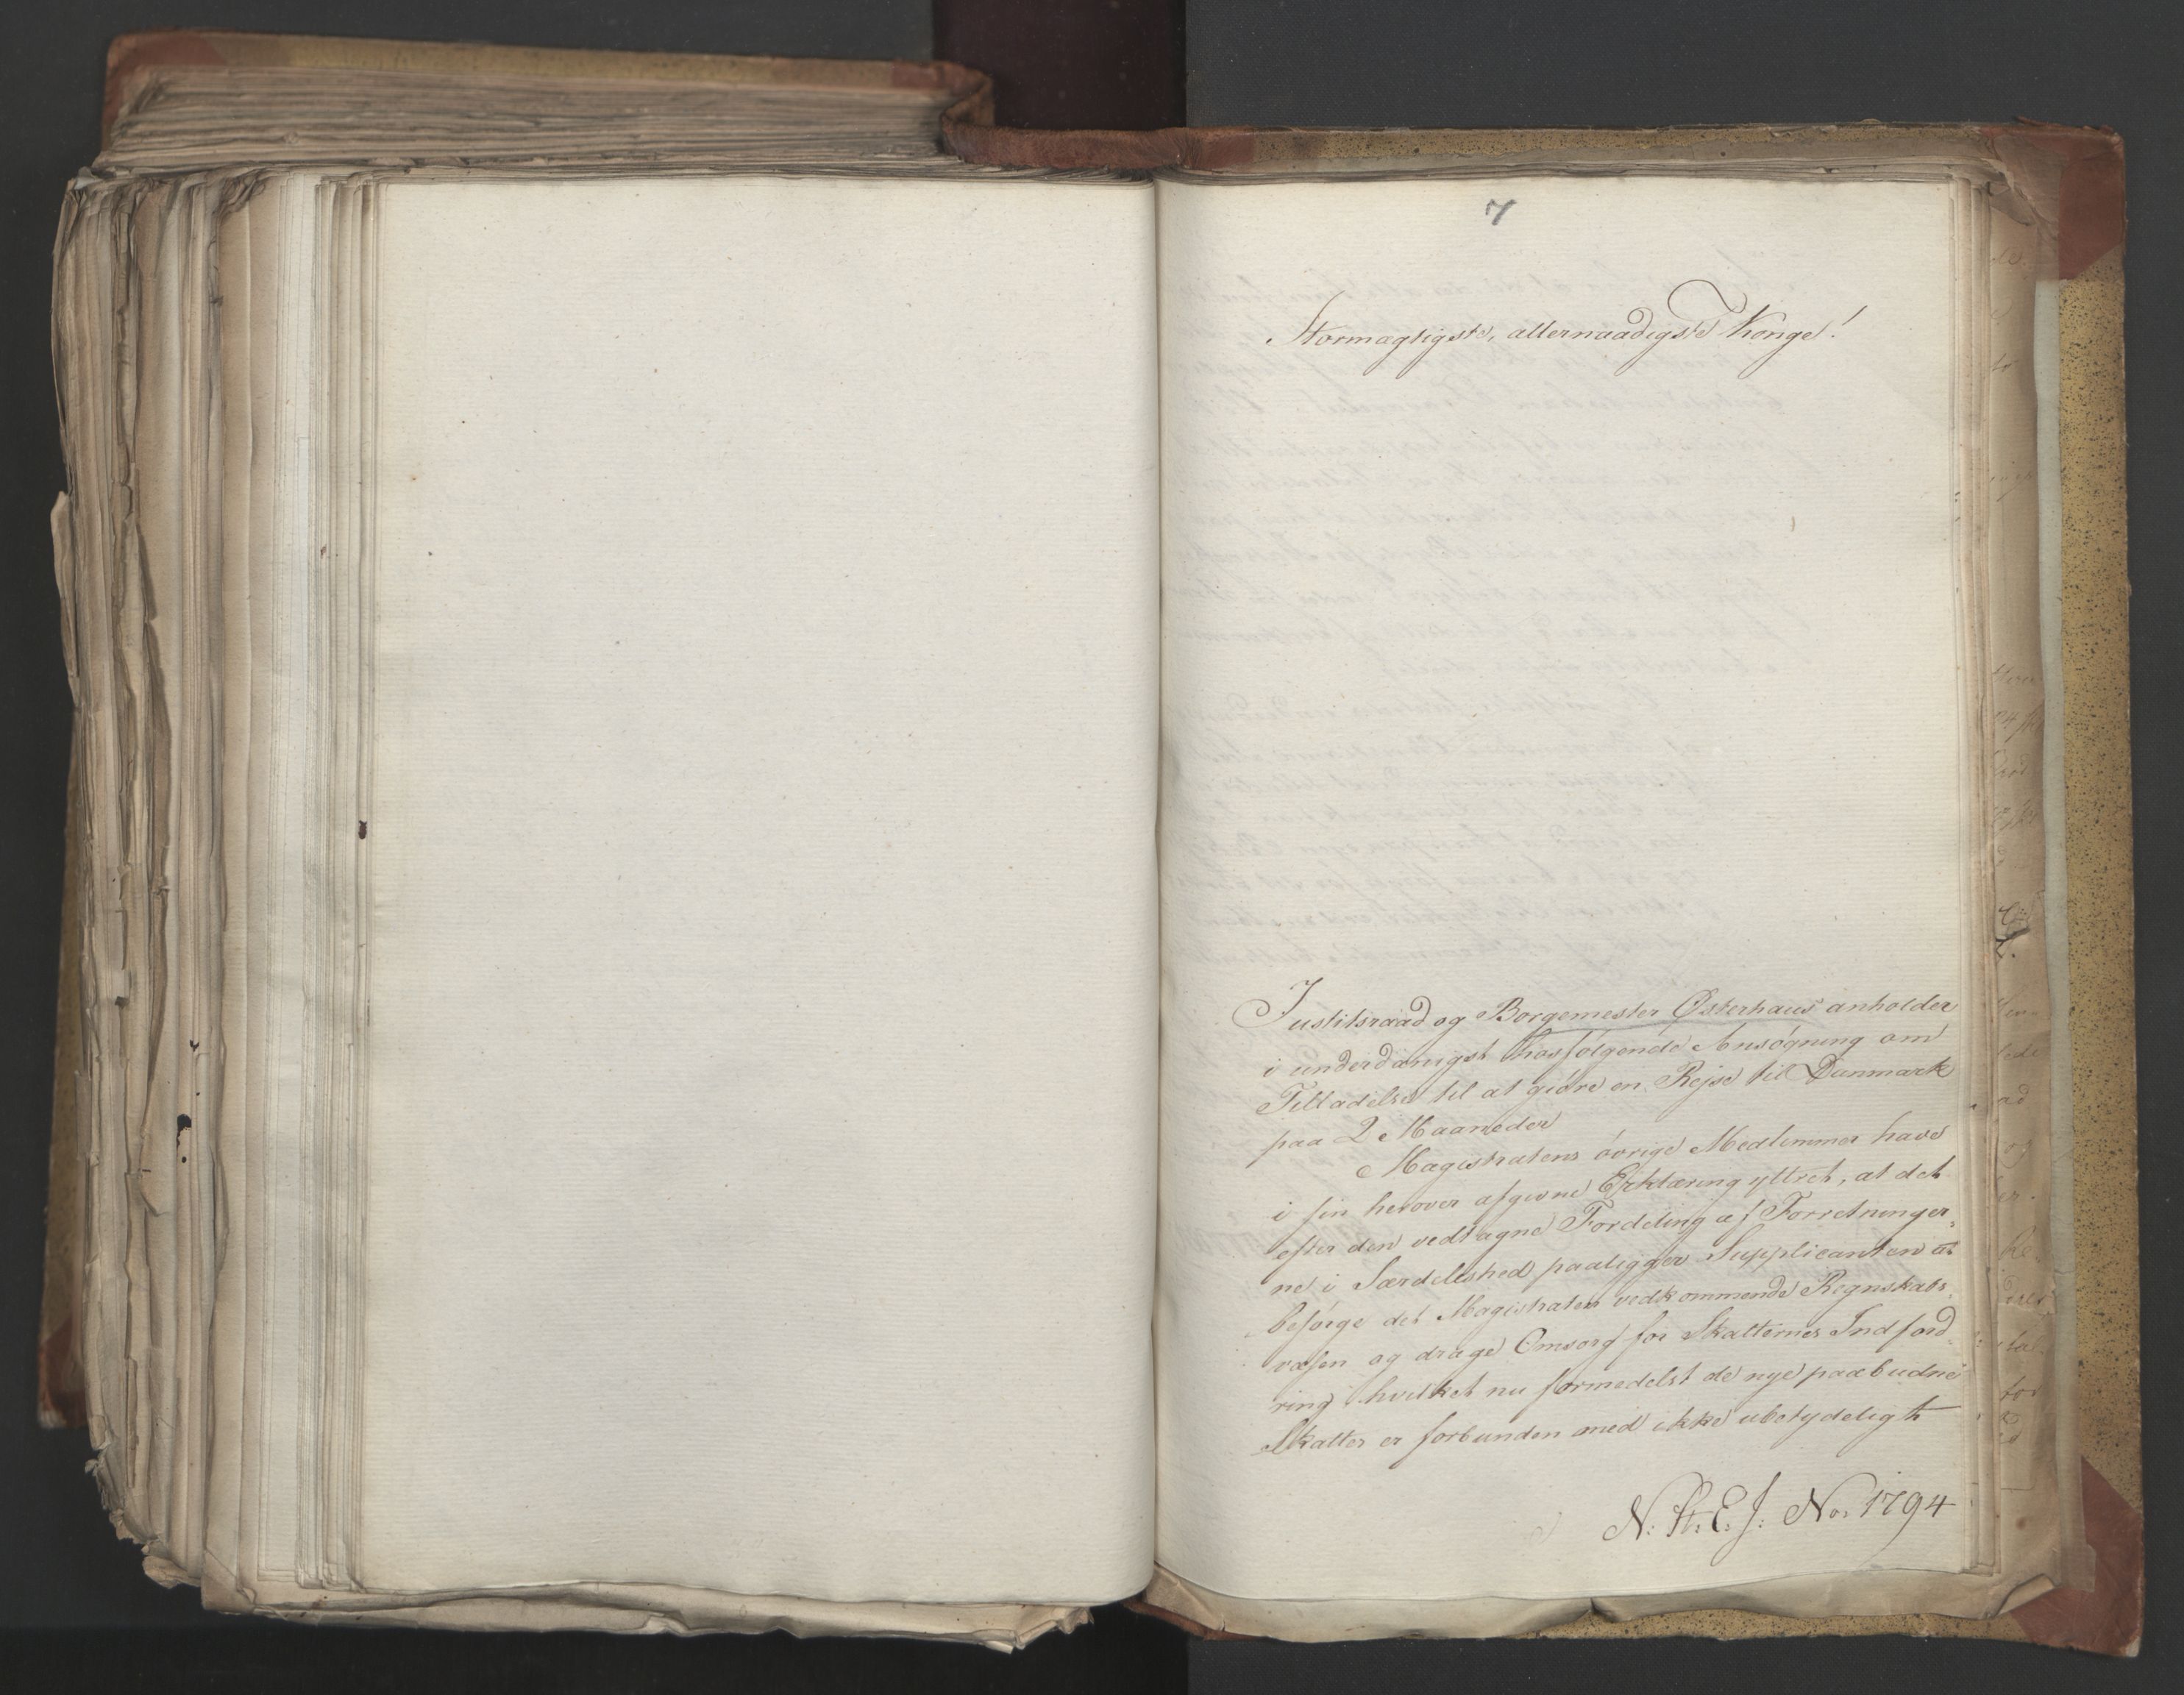 7
Stormægtigste, allernaadigste Konge!
Justitsraad og Borgemester Østerhaus anholder
i underdanigst hosfølgende Ansøgning om
Tilladelse til at giøre en Rejse til Danmark
paa 2 Maaneder
Magistratens øvrige Medlemmer have
i sin herover afgivne Erklæring yttret, at det
efter den vedtagne Fordeling af Forretninger-
ne i Særdeleshed paaligger Supplicanten at
besørge det Magistraten vedkommende Regnskabs-
væsen og drage Omsorg for Skatternes Indford-
ring hvilket nu formedelst de nye paabudne
Skatter er forbunden med ikke ubetydeligt
N: St: E. J: No. 1794